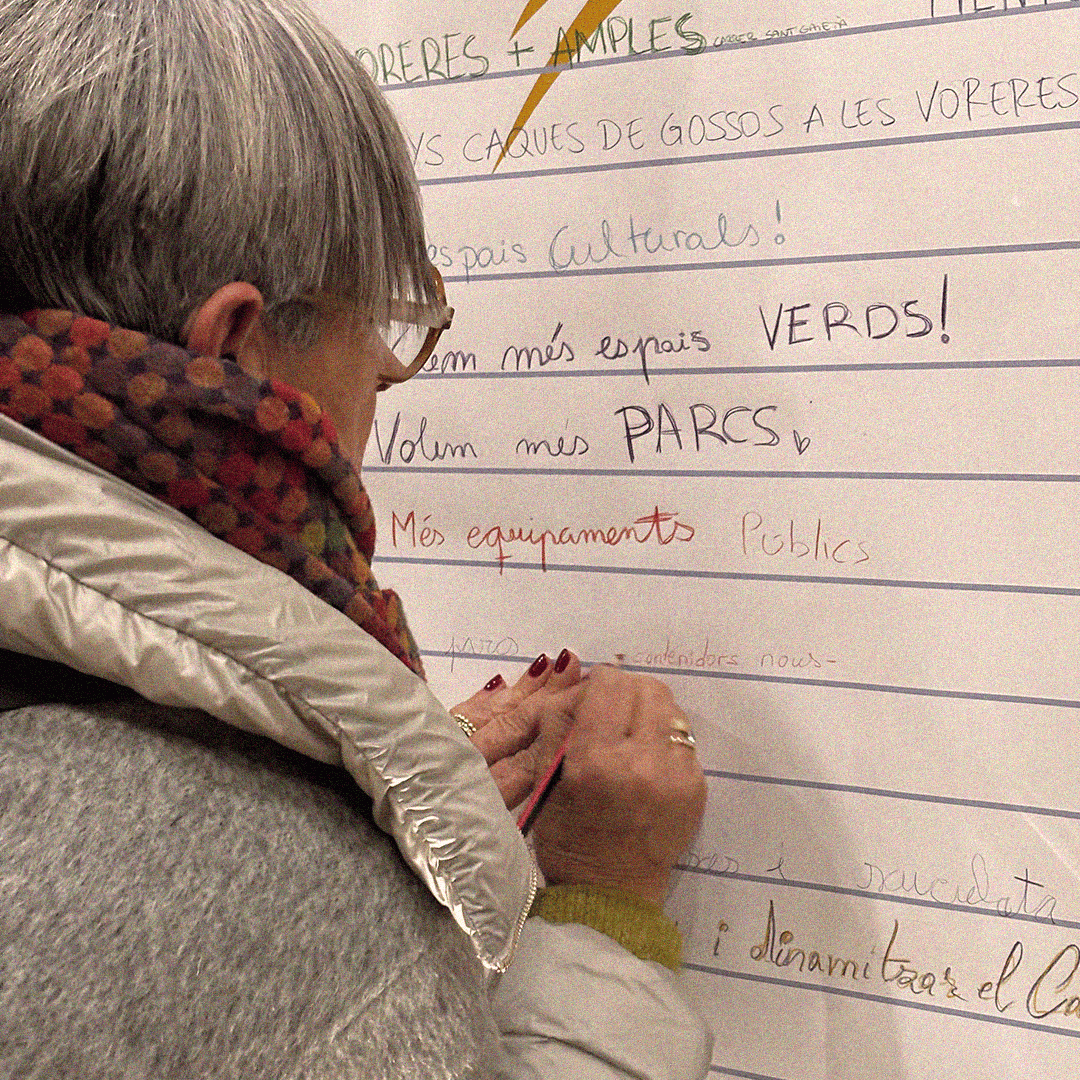 ORERES + AMPLES CARRER SANT
YS CAQUES DE GOSSOS A LES VORERES
espais Culturals!
lem més espais VERDS!
Volem més PARCS
Més equipaments Públics
contenidors nous-
i
i dinamitzar el Ca